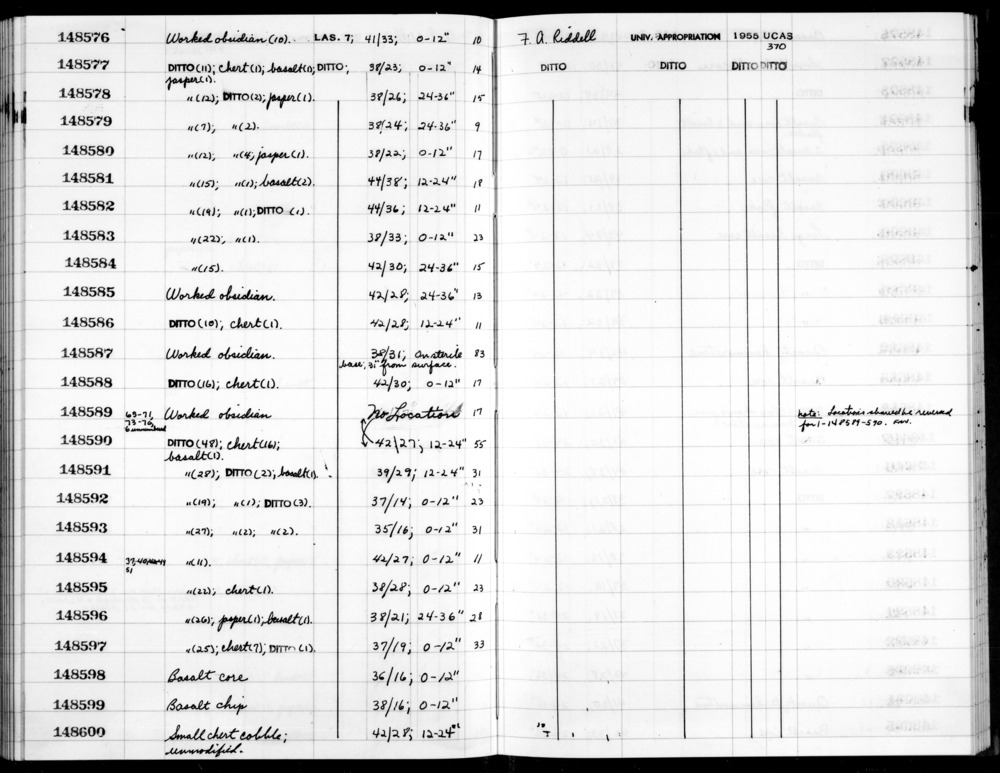 148576 Worked obsidian (10). LAS. 7; 41/33; 0-12" 10 F. A. Riddell UNIV. APPROPRIATION 1955 UCAS
370
148577 DITTO (11); chert (1); basalt (1); DITTO; 38/23; 0-12" 14 DITTO DITTO DITTO DITTO
jasper (1).
148578 " (12); DITTO (2); jasper (1). 38/26; 24-36" 15
148579 " (7); " (2). 38/24; 24-36" 9
148580 " (12); " (4); jasper (1). 38/22; 0-12" 17
148581 " (15); " (1); basalt (2). 44/38; 12-24" 18
148582 " (19); " (1); DITTO (1). 44/36; 12-24" 11
148583 " (22); " (1). 38/33; 0-12" 23
148584 " (15). 42/30; 24-36" 15
148585 Worked obsidian. 42/28; 24-36" 13
148586 DITTO (10); chert (1). 42/28; 12-24" 11
148587 Worked obsidian. 38/31; on sterile 83
base, 31" from surface.
148588 DITTO (16); chert (1). 42/30; 0-12" 17
148589 69-71, Worked obsidian No Location 17 note: Locations should be reversed
73-76, for 1-148589-590.
148590 DITTO (48); chert (6); 42/27; 12-24" 55
basalt (1).
148591 " (28); DITTO (2); basalt (1). 39/29; 12-24" 31
148592 " (19); " (1); DITTO (3). 37/14; 0-12" 23
148593 " (27); " (2); " (2). 35/16; 0-12" 31
148594 " (11). 42/27; 0-12" 11
51
148595 " (22); chert (1). 38/28; 0-12" 23
148596 " (26); jasper (1); basalt (1). 38/21; 24-36" 28
148597 " (25); chert (7); DITTO (1). 37/19; 0-12" 33
148598 Basalt core 36/16; 0-12"
148599 Basalt chip 38/16; 0-12"
148600 Small chert cobble; 42/28; 12-24"
unmodified.